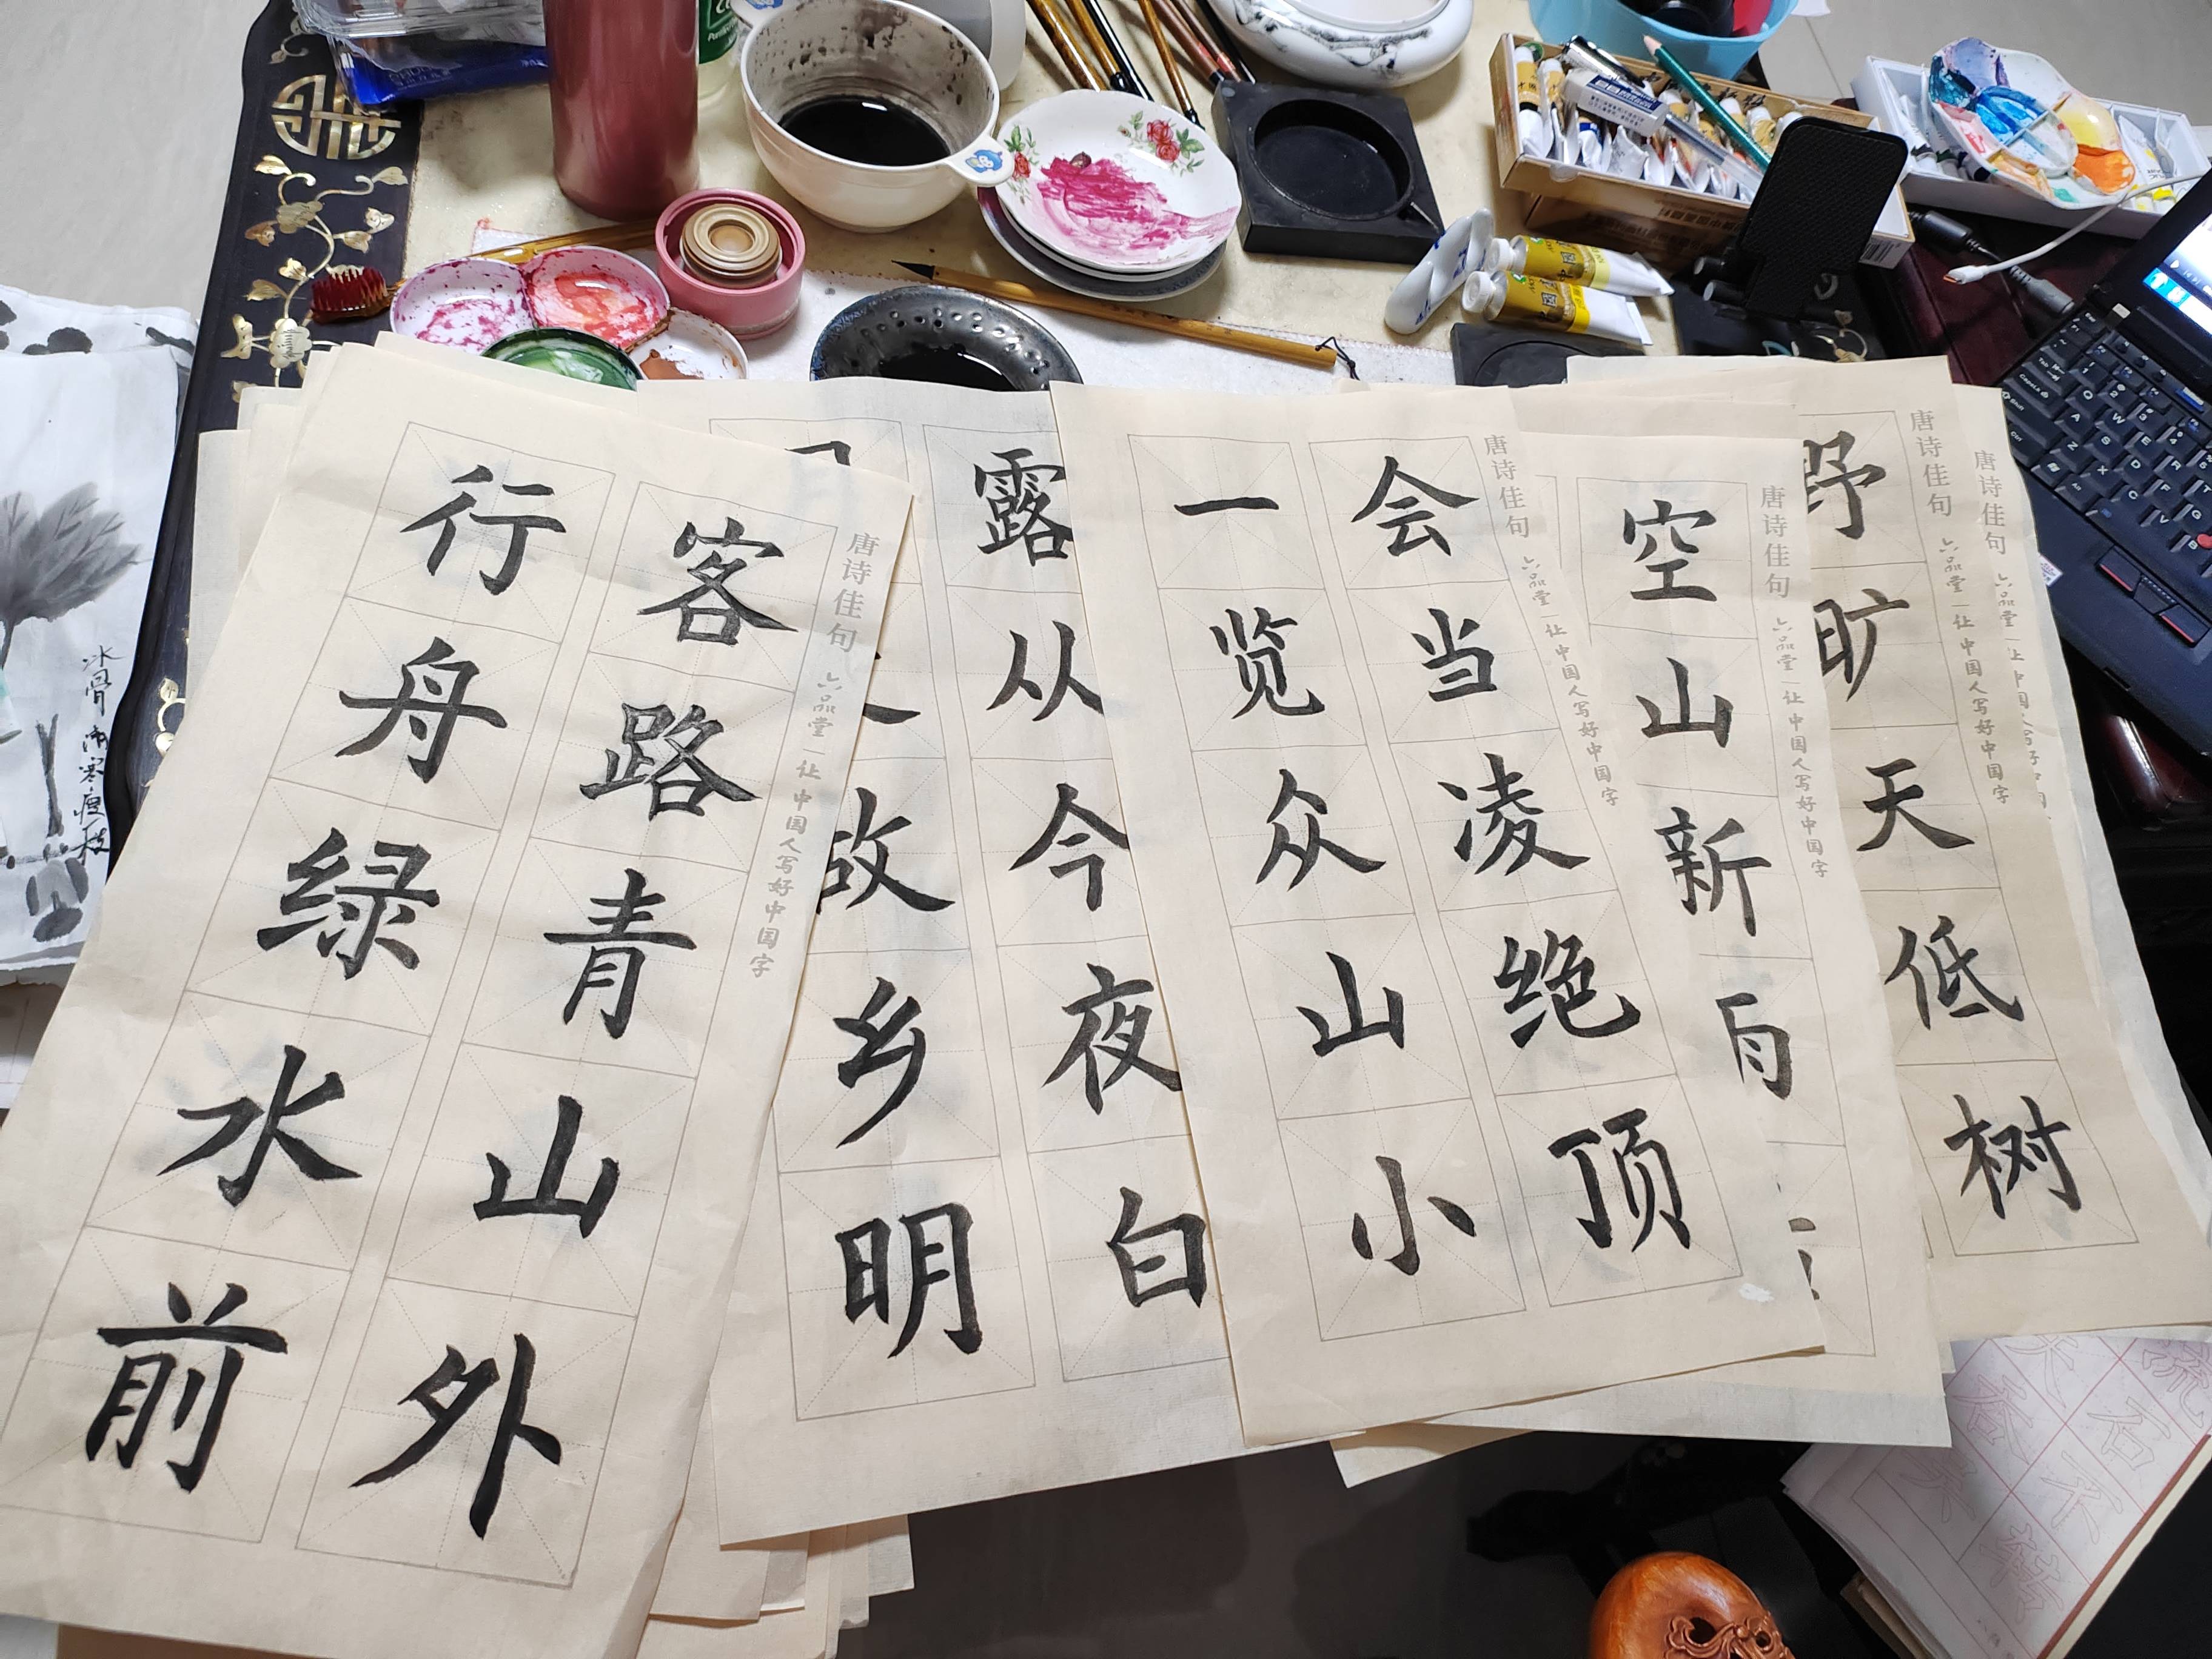 客路青山外
行舟绿水前
唐诗佳句 六品堂 | 让中国人写好中国字
露从今夜白
故乡明
会当凌绝顶
一览众山小
唐诗佳句 六品堂 | 让中国人写好中国字
空山新
唐诗佳句 六品堂 | 让中国人写好中国字
野旷天低树
唐诗佳句 六品堂 | 让中国人写好中国字
唐诗佳句 六品堂
冰骨清寒瘦一枝